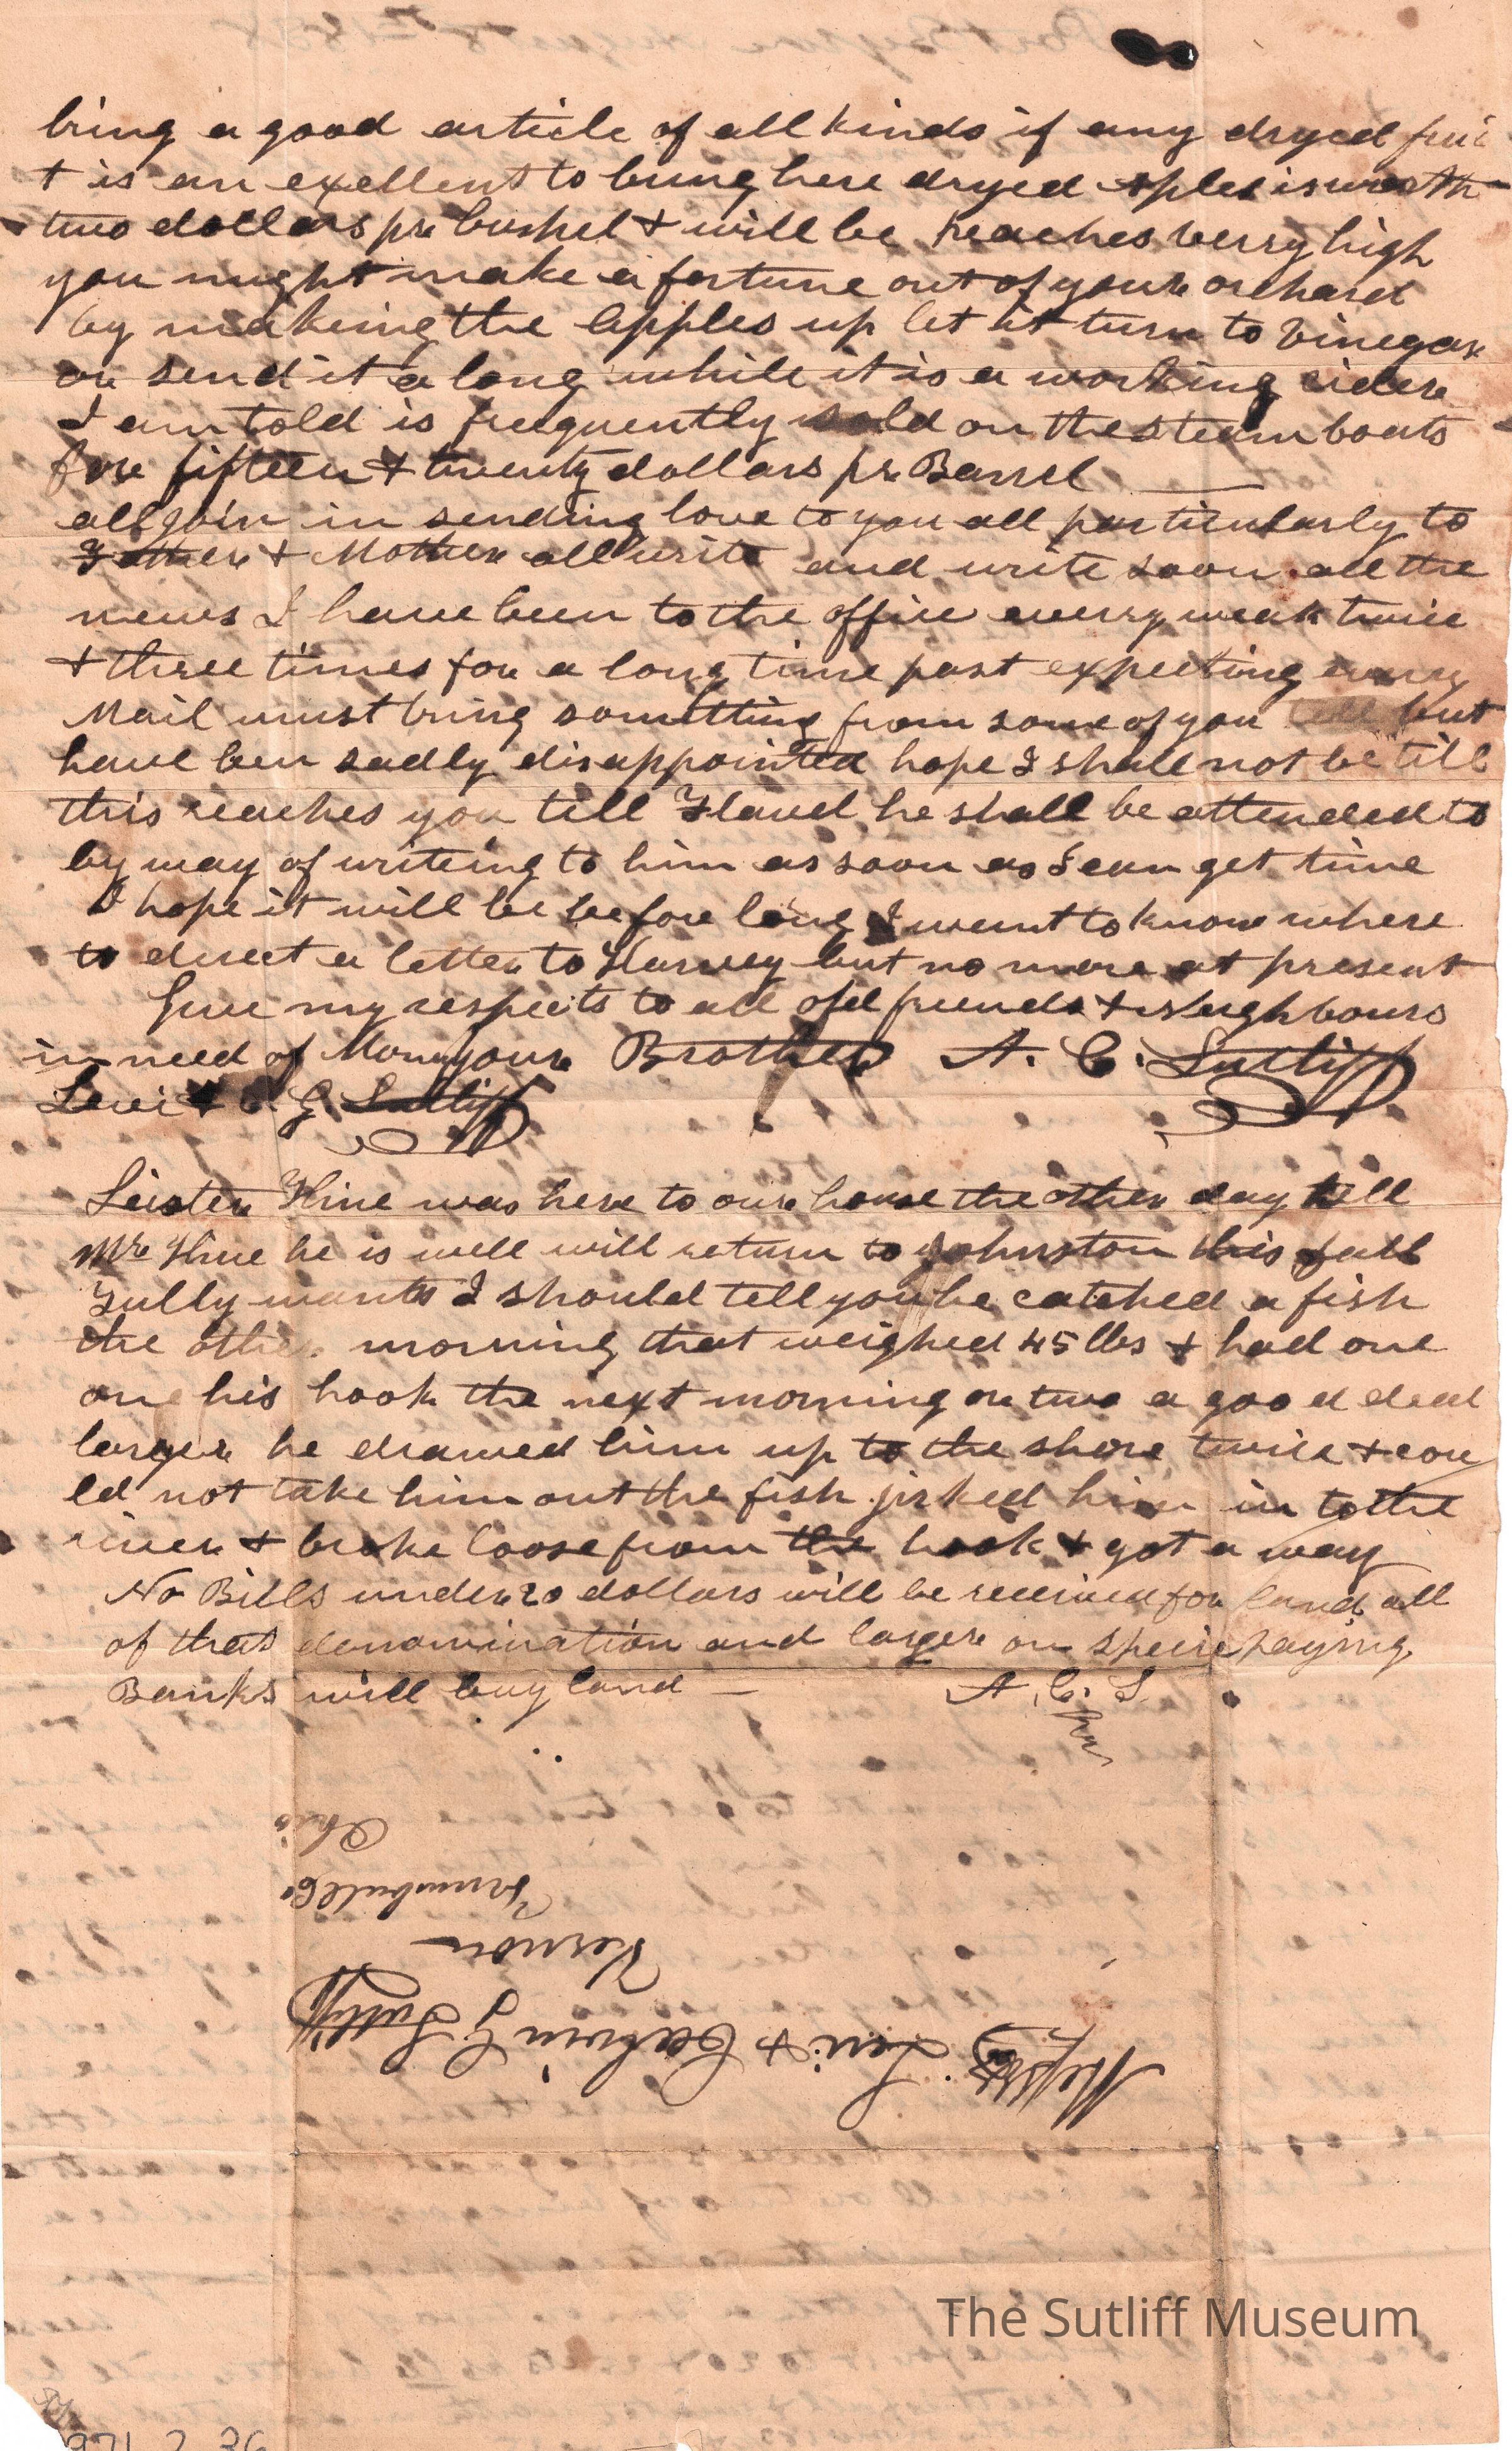 bring a good article of all kinds if any dryed frui
t is an exellent to bring here dryed aples is worth
two dollars pr bushel & will be peaches verry high
you might make a fortune out of your orchard
by makeing the apples up let it turn to vinegar
or send it a long while it is a working cider
I am told is frequently sold on the steam boats
for fifteen & twenty dollars pr Barrel
all join in sending love to you all particularly to
Father & Mother all write and write soon all the
news I have been to the office everry weak twice
& three times for a long time past expecting everry
Mail must bring something from some of you but
have ben sadly disappointed hope I shall not be till
this reaches you tell Flavel he shall be attended to
by way of writeing to him as soon as I can get time
I hope it will be before long I want to know where
to direct a letter to Harvey but no more at present
Give my respects to all old friends & Neighbours
in need of Money your Brother A. C. Sutliff
Levi & C. G. Sutliff
Leister Hine was here to our house the other day tell
Mr Hine he is well will return to Johnston this fall
Gully wants I should tell you he catched a fish
the other morning that weighed 45 lbs & had one
one his hook the next morning or two a good deal
larger he drawed him up to the shore twice & cou
ld not take him out the fish jirked him in to the
river & broke loose from the hook & got a way
No Bills under 20 dollars will be received for land all
of that denomination and larger on specie paying
Banks will buy land A. C. S.
Messrs Levi & Calvin G Sutliff
Vernon
Trumbull Co
Ohio
The Sutliff Museum
971.2.36